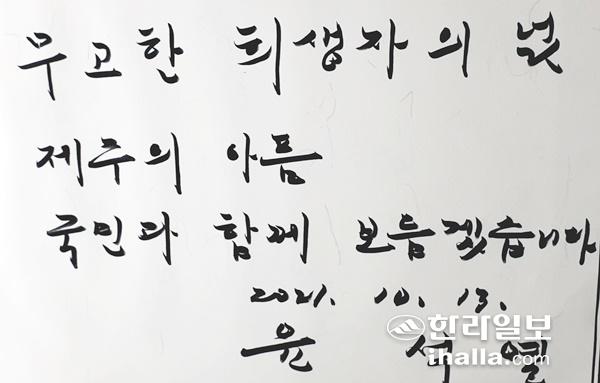 무고한 희생자의 넋
제주의 아픔
국민과 함께 보듬겠습니다
2021. 10. 13.
윤 석 열
한라일보
ihalla.com